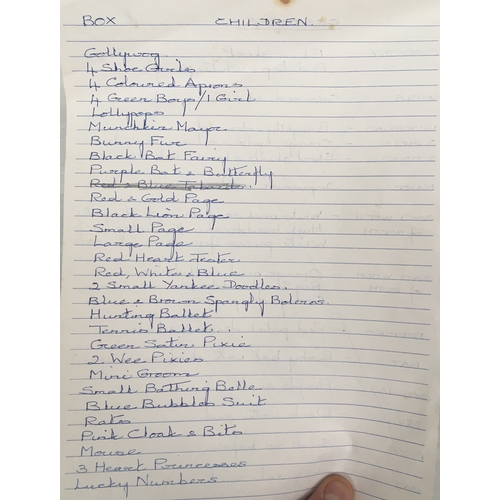 BOX CHILDREN.
Gollywog
4 Shoe Girls
4 Coloured Aprons
4 Green Boys/1 Girl
Lollypops
Munchkin Mayor
Bunny Fur
Black Bat Fairy
Purple Bat & Butterfly
Red & Blue Islands.
Red & Gold Page
Black Lion Page
Small Page
Large Page
Red Heart
Red, White & Blue
2 Small Yankee Doodles.
Blue & Brown Spangly Boleros.
Hunting Ballet
Tennis Ballet.
Green Satin Pixie
2 Wee Pixies
Mini Groom
Small Bathing Belle
Blue Bubbles Suit
Rats
Pink Cloak & Bits
Mouse
3 Heart Princesses
Lucky Numbers